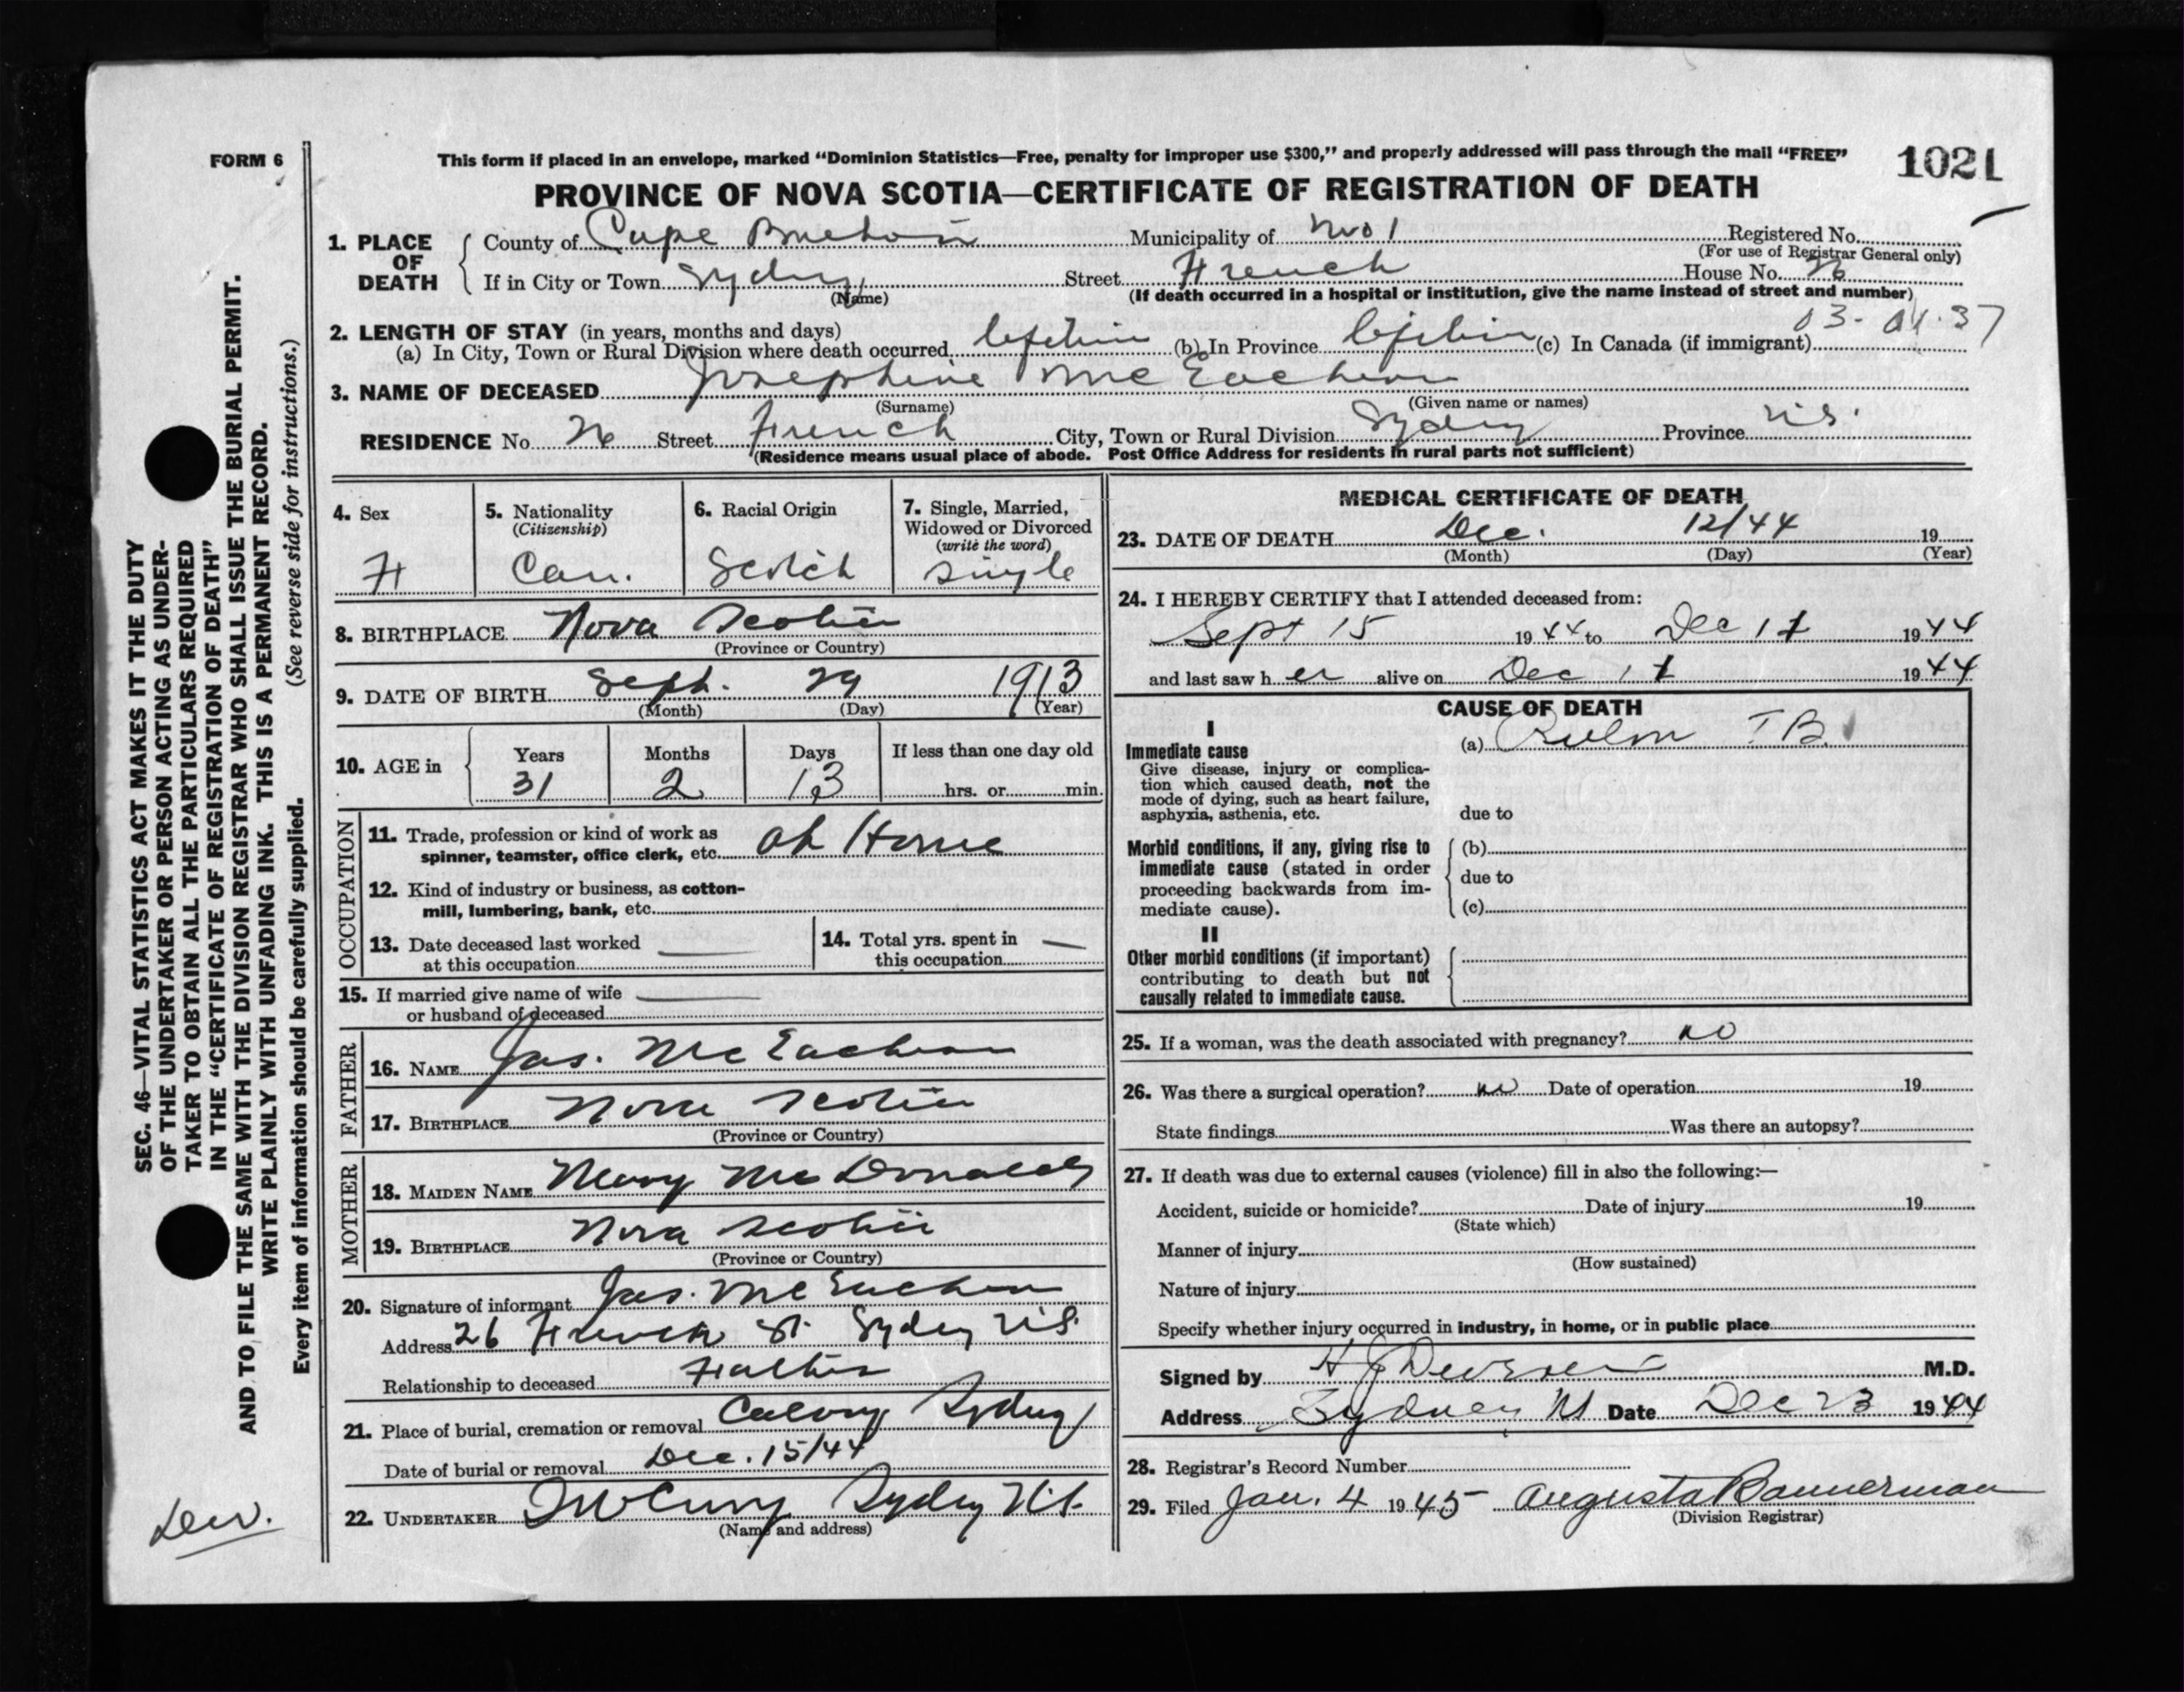 FORM 6
This form if placed in an envelope, marked “Dominion Statistics—Free, penalty for improper use $300,” and properly addressed will pass through the mail “FREE”
1021
PROVINCE OF NOVA SCOTIA—CERTIFICATE OF REGISTRATION OF DEATH
SEC. 46—VITAL STATISTICS ACT MAKES IT THE DUTY
OF THE UNDERTAKER OR PERSON ACTING AS UNDER-
TAKER TO OBTAIN ALL THE PARTICULARS REQUIRED
IN THE “CERTIFICATE OF REGISTRATION OF DEATH”
AND TO FILE THE SAME WITH THE DIVISION REGISTRAR WHO SHALL ISSUE THE BURIAL PERMIT.
WRITE PLAINLY WITH UNFADING INK. THIS IS A PERMANENT RECORD.
Every item of information should be carefully supplied. (See reverse side for instructions.)
1. PLACE OF DEATH County of Cape Breton Municipality of No 1 Registered No.
(For use of Registrar General only)
If in City or Town Sydney Street French House No. 26
(Name) (If death occurred in a hospital or institution, give the name instead of street and number)
03-01-37
2. LENGTH OF STAY (in years, months and days)
(a) In City, Town or Rural Division where death occurred lifetime (b) In Province lifetime (c) In Canada (if immigrant)
3. NAME OF DECEASED Josephine McEachern
(Surname) (Given name or names)
RESIDENCE No 26 Street French City, Town or Rural Division Sydney Province N.S.
(Residence means usual place of abode. Post Office Address for residents in rural parts not sufficient)
4. Sex F
5. Nationality (Citizenship) Can.
6. Racial Origin Scotch
7. Single, Married, Widowed or Divorced (write the word) Single
8. BIRTHPLACE Nova Scotia
(Province or Country)
9. DATE OF BIRTH Sept. 29 1913
(Month) (Day) (Year)
10. AGE in Years 31 Months 2 Days 13 If less than one day old hrs. or min.
OCCUPATION
11. Trade, profession or kind of work as
spinner, teamster, office clerk, etc. At Home
12. Kind of industry or business, as cotton-
mill, lumbering, bank, etc.
13. Date deceased last worked
at this occupation —
14. Total yrs. spent in
this occupation —
15. If married give name of wife —
or husband of deceased
FATHER
16. NAME Jas. McEachern
17. BIRTHPLACE Nova Scotia
(Province or Country)
MOTHER
18. MAIDEN NAME Mary McDonald
19. BIRTHPLACE Nova Scotia
(Province or Country)
20. Signature of informant Jas. McEachern
Address 26 French St. Sydney N.S.
Relationship to deceased Father
21. Place of burial, cremation or removal Calvary Sydney
Date of burial or removal Dec. 15/44
22. UNDERTAKER Sydney N.S.
(Name and address)
MEDICAL CERTIFICATE OF DEATH
23. DATE OF DEATH Dec. 12/44 19
(Month) (Day) (Year)
24. I HEREBY CERTIFY that I attended deceased from:
Sept 15 1944 to Dec 11 1944
and last saw her alive on Dec 11 1944
CAUSE OF DEATH
I
Immediate cause (a) Pulm T.B.
Give disease, injury or complica-
tion which caused death, not the
mode of dying, such as heart failure,
asphyxia, asthenia, etc. due to
Morbid conditions, if any, giving rise to (b)
immediate cause (stated in order
proceeding backwards from im- due to
mediate cause). (c)
II
Other morbid conditions (if important)
contributing to death but not
causally related to immediate cause.
25. If a woman, was the death associated with pregnancy? no
26. Was there a surgical operation? no Date of operation 19
State findings Was there an autopsy?
27. If death was due to external causes (violence) fill in also the following:—
Accident, suicide or homicide? Date of injury 19
(State which)
Manner of injury
(How sustained)
Nature of injury
Specify whether injury occurred in industry, in home, or in public place
Signed by H J M.D.
Address Sydney NS Date Dec 23 1944
28. Registrar's Record Number
29. Filed Jan. 4 1945 Augusta Bannerman
(Division Registrar)